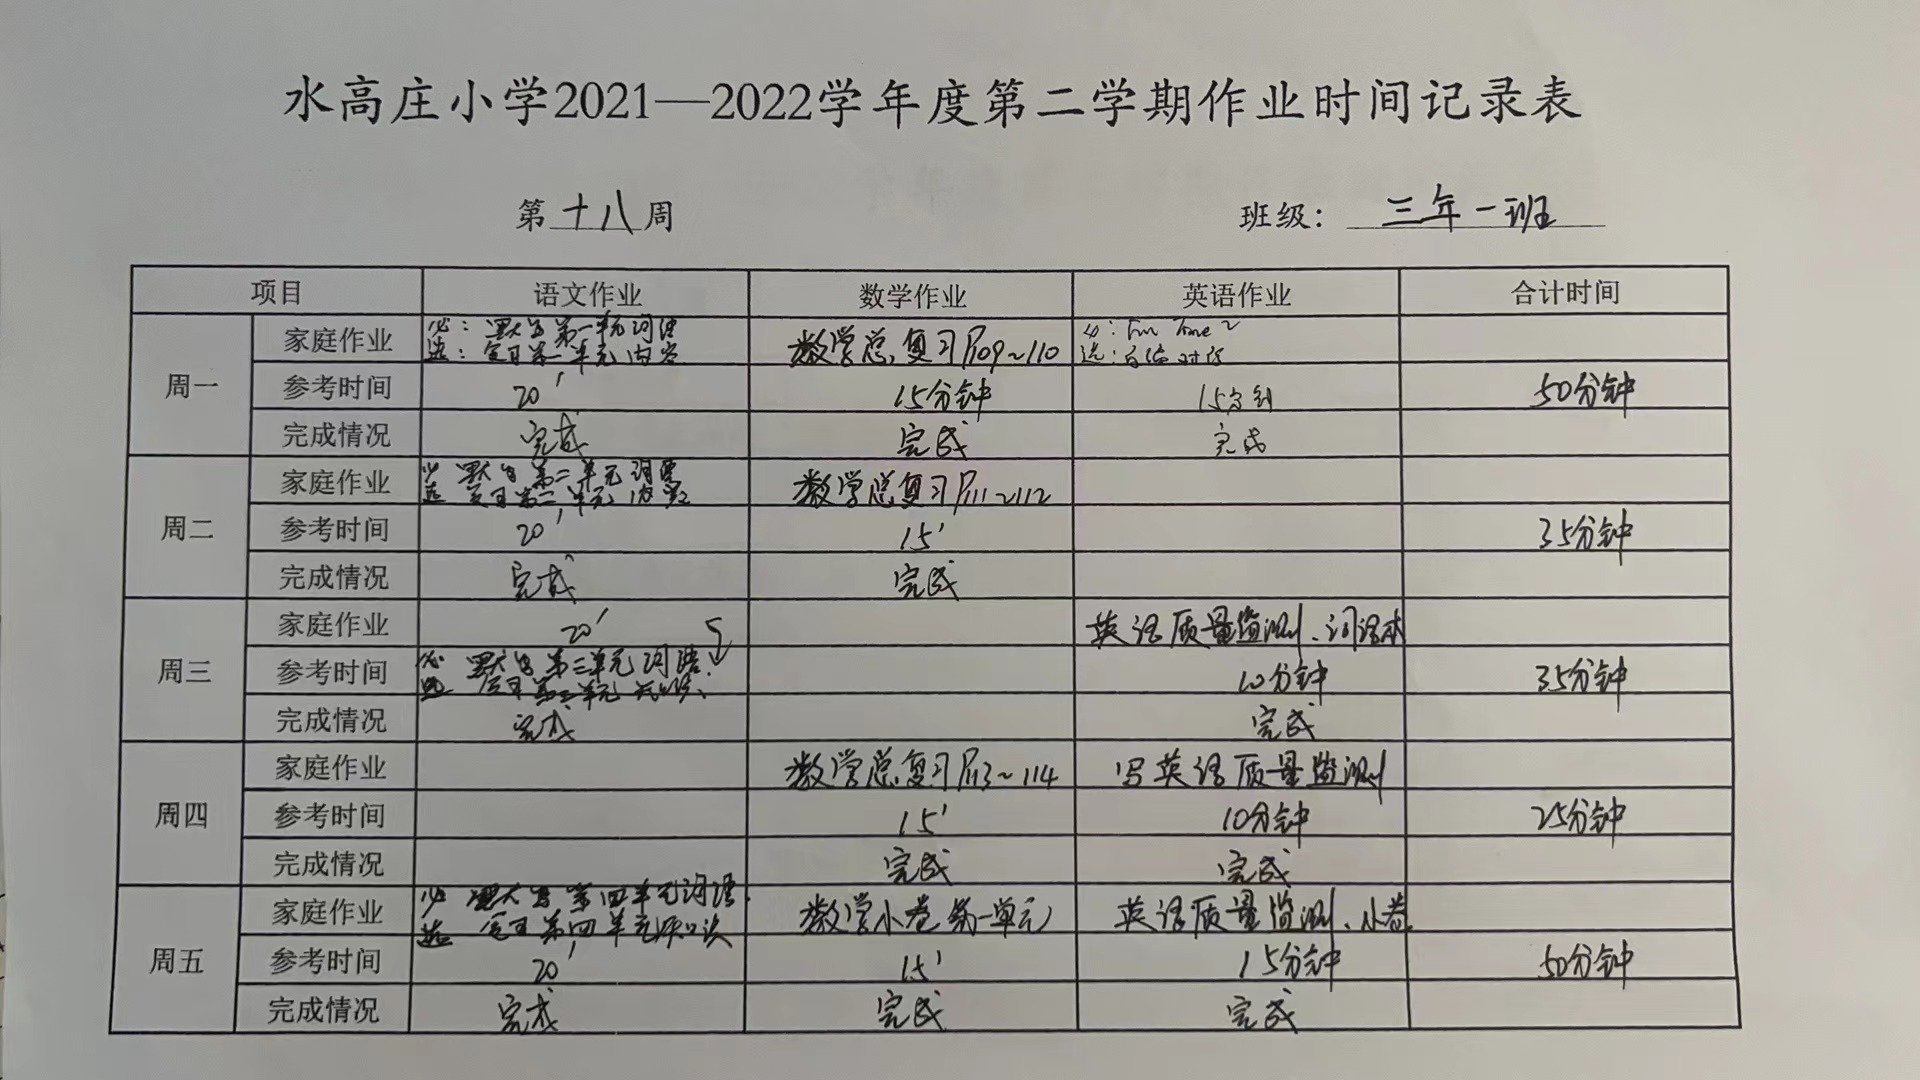 水高庄小学2021—2022学年度第二学期作业时间记录表
第十八周 班级：三年一班
项目 语文作业 数学作业 英语作业 合计时间
周一
家庭作业 必：默写第一单元词语 数学总复习P109~110 必：Fun Time 2
选：复习第一单元内容 选：自编对话
参考时间 20′ 15分钟 15分钟 50分钟
完成情况 完成 完成 完成
周二
家庭作业 必 默写第二单元词语 数学总复习P111~112
选 复习第二单元内容
参考时间 20′ 15′ 35分钟
完成情况 完成 完成
周三
家庭作业 20′ 英语质量监测、词语本
参考时间 必 默写第三单元词语. 10分钟 35分钟
选 复习第三单元
完成情况 完成 完成
周四
家庭作业 数学总复习P113~114 写英语质量监测
参考时间 15′ 10分钟 25分钟
完成情况 完成 完成
周五
家庭作业 必 默写第四单元词语. 数学小卷第一单元 英语质量监测、小卷
选 复习第四单元知识
参考时间 20′ 15′ 15分钟 50分钟
完成情况 完成 完成 完成